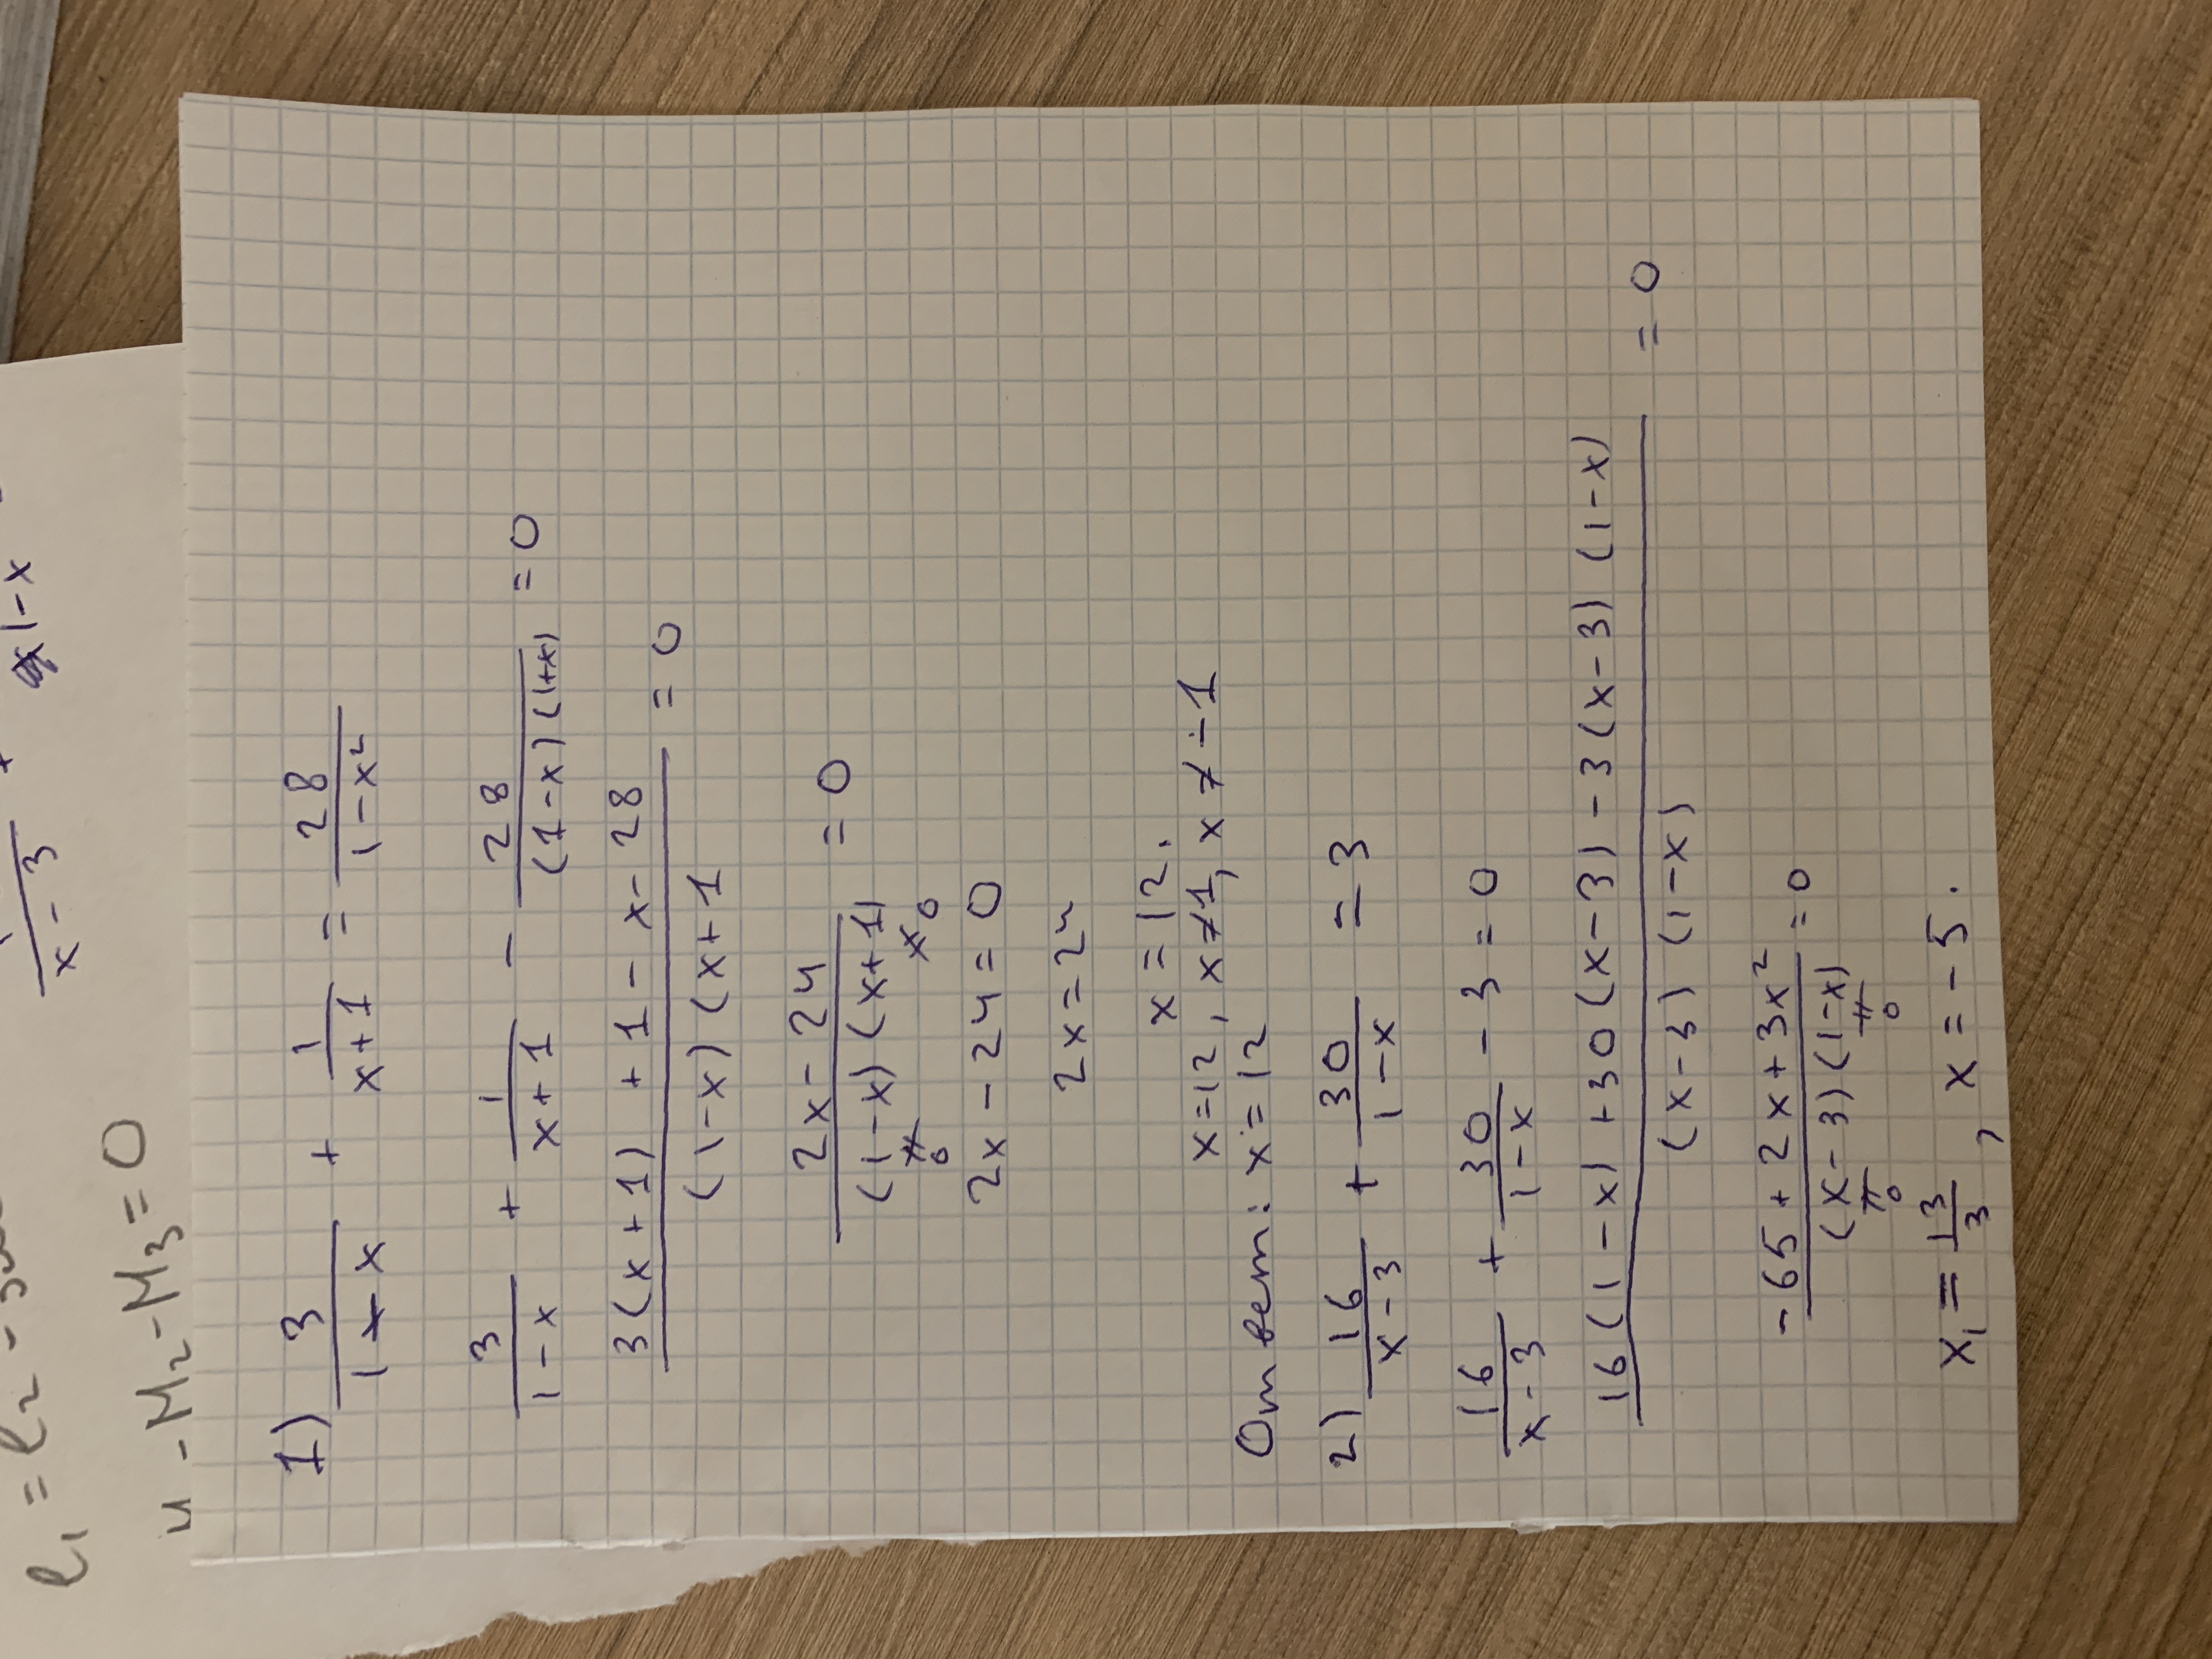 l₁ = l₂ -
м - М₂ - М₃ = 0
x - 3
1 - x
1) 3/(1 - x) + 1/(x + 1) = 28/(1 - x²)
3/(1 - x) + 1/(x + 1) - 28/((1 - x)(1 + x)) = 0
(3(x + 1) + 1 - x - 28)/((1 - x)(x + 1) = 0
(2x - 24)/((1 - x)(x + 1)) = 0
≠0 ≠0
2x - 24 = 0
2x = 24
x = 12.
x = 12, x ≠ 1, x ≠ -1
Ответ: x = 12
2) 16/(x - 3) + 30/(1 - x) = 3
16/(x - 3) + 30/(1 - x) - 3 = 0
(16(1 - x) + 30(x - 3) - 3(x - 3)(1 - x))/((x - 3)(1 - x)) = 0
(-65 + 2x + 3x²)/((x - 3)(1 - x)) = 0
≠0 ≠0
x₁ = 13/3, x = -5.